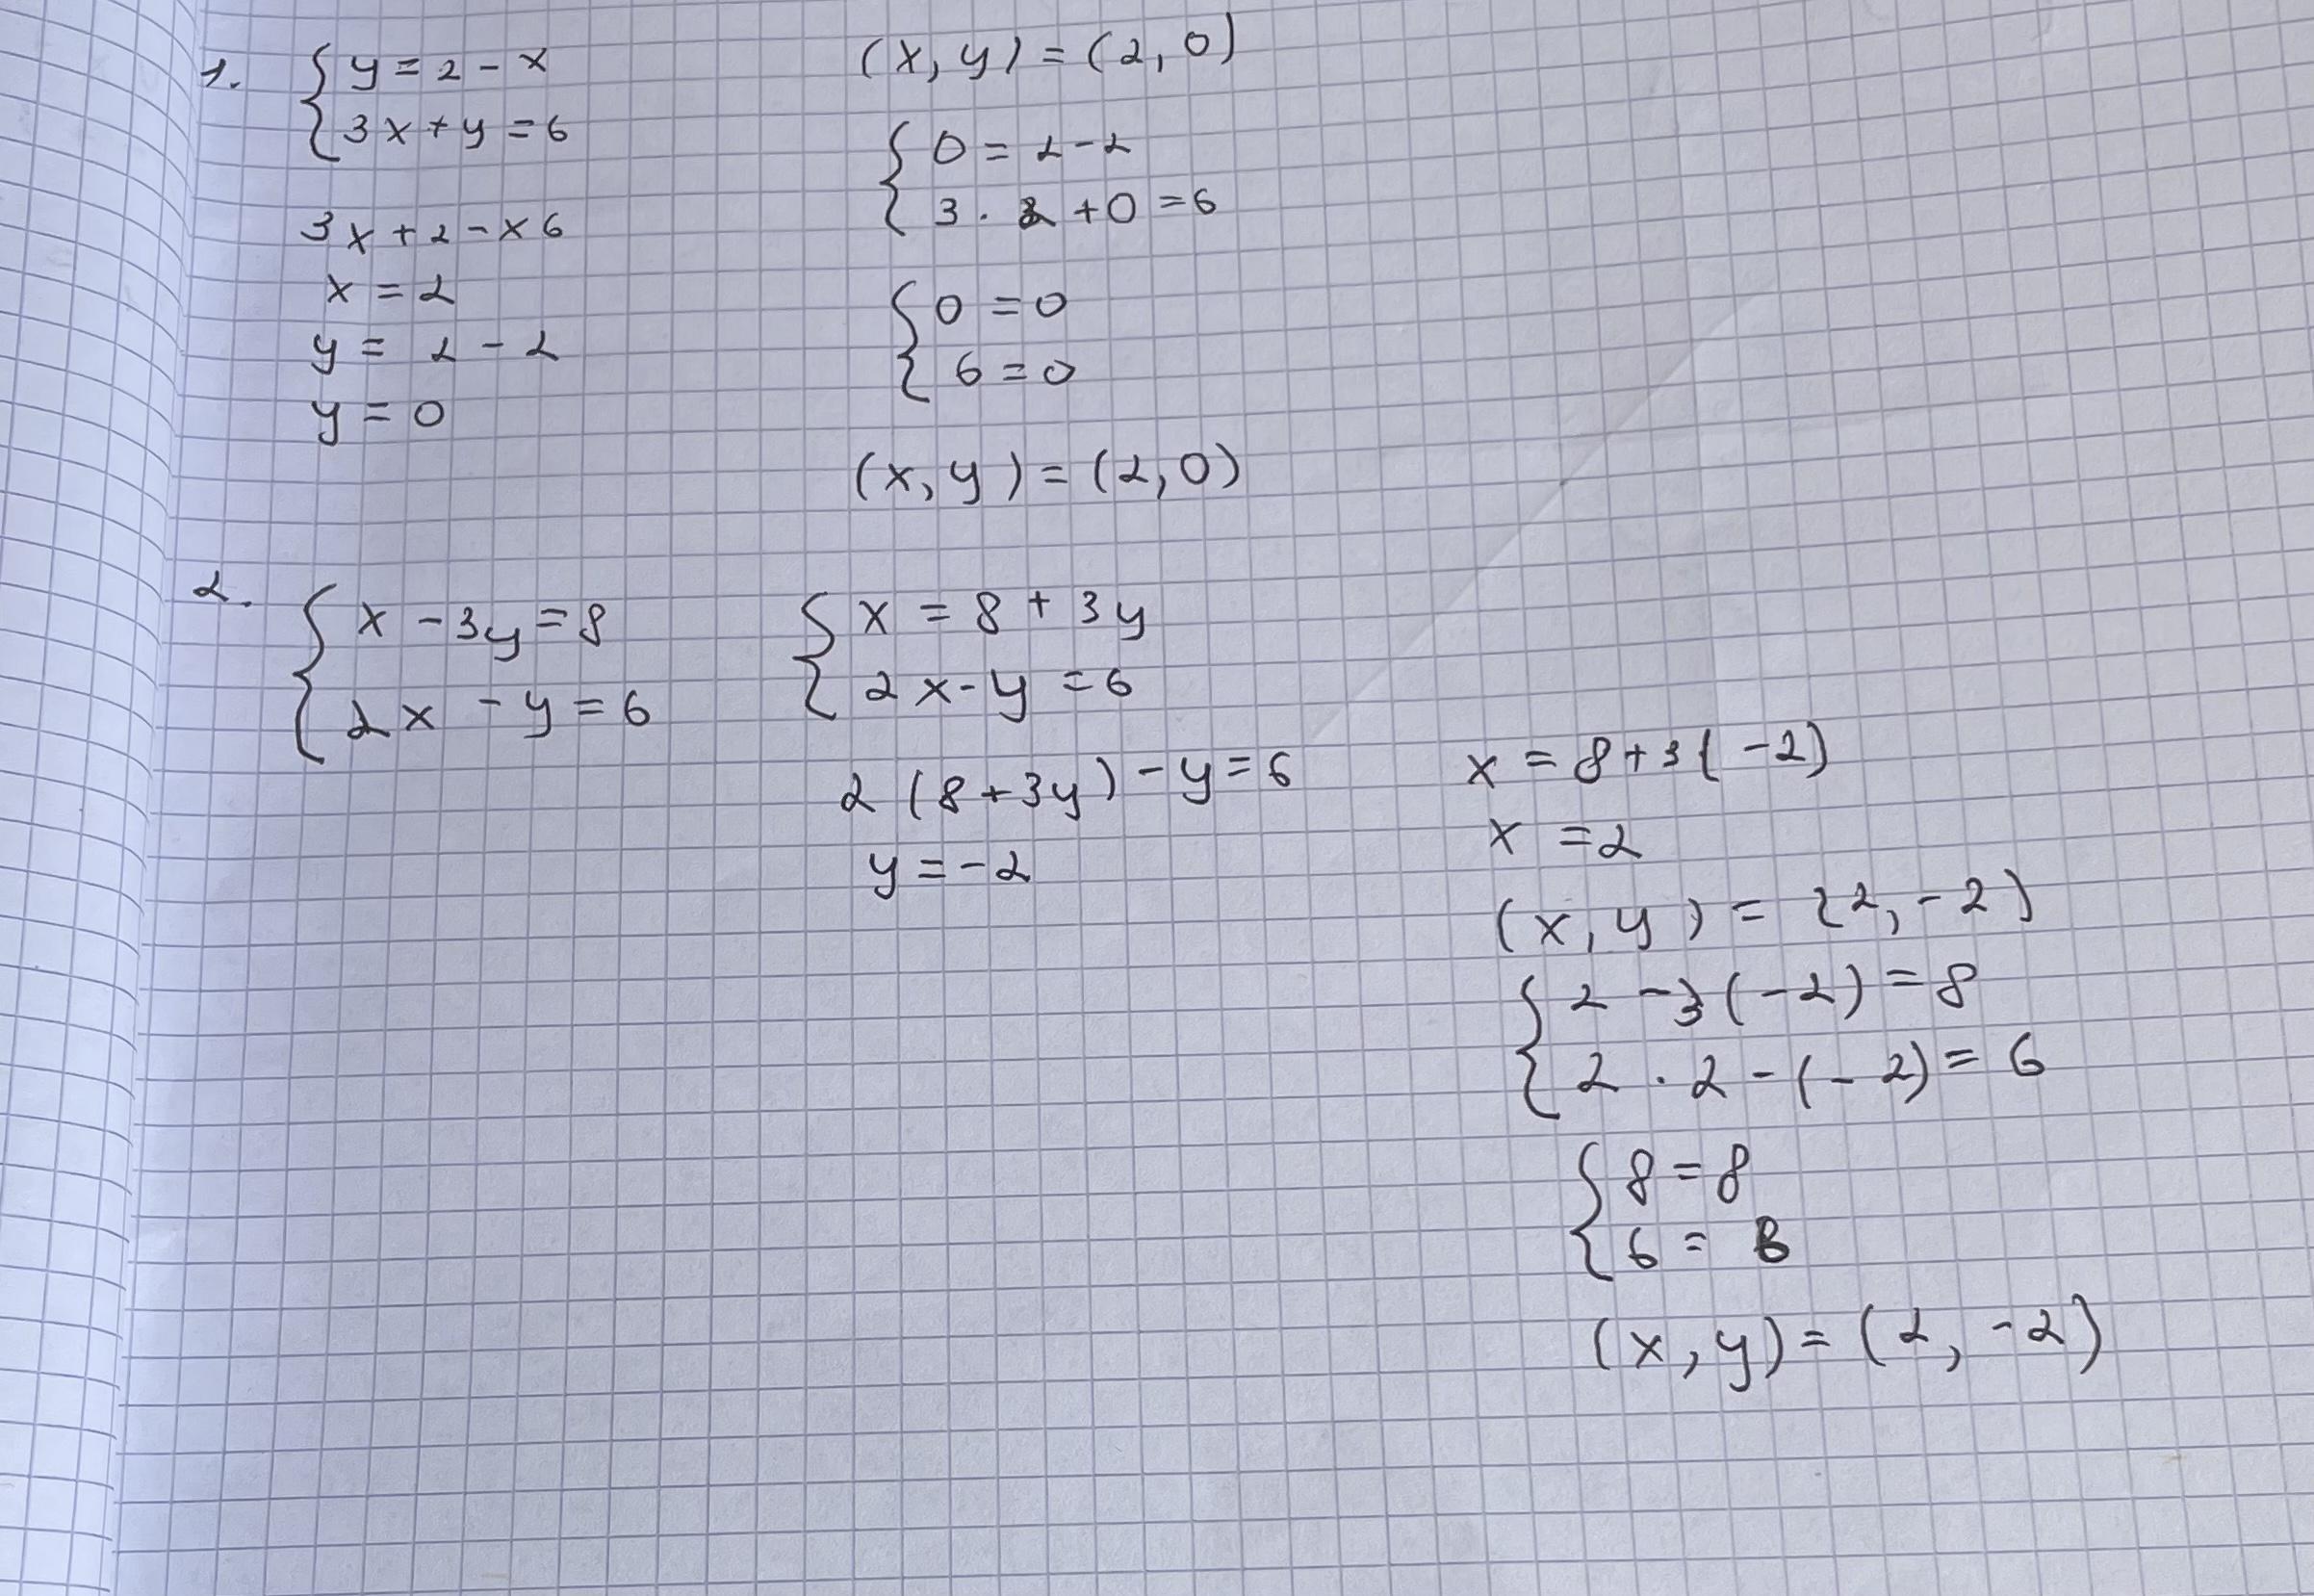 1. { y = 2 - x
3x + y = 6
3x + 2 - x 6
x = 2
y = 2 - 2
y = 0
(x, y) = (2, 0)
{ 0 = 2 - 2
3 · 2 + 0 = 6
{ 0 = 0
6 = 0
(x, y) = (2, 0)
2. { x - 3y = 8
2x - y = 6
{ x = 8 + 3y
2x - y = 6
2 (8 + 3y) - y = 6
y = -2
x = 8 + 3( -2)
x = 2
(x, y) = (2, -2)
{ 2 - 3(-2) = 8
2 · 2 - (-2) = 6
{ 8 = 8
6 = 6
(x, y) = (2, -2)